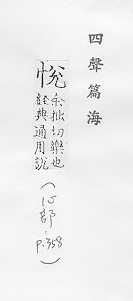 四聲篇海
悅
余拙切樂也
經典通用說
(心部, p.358)